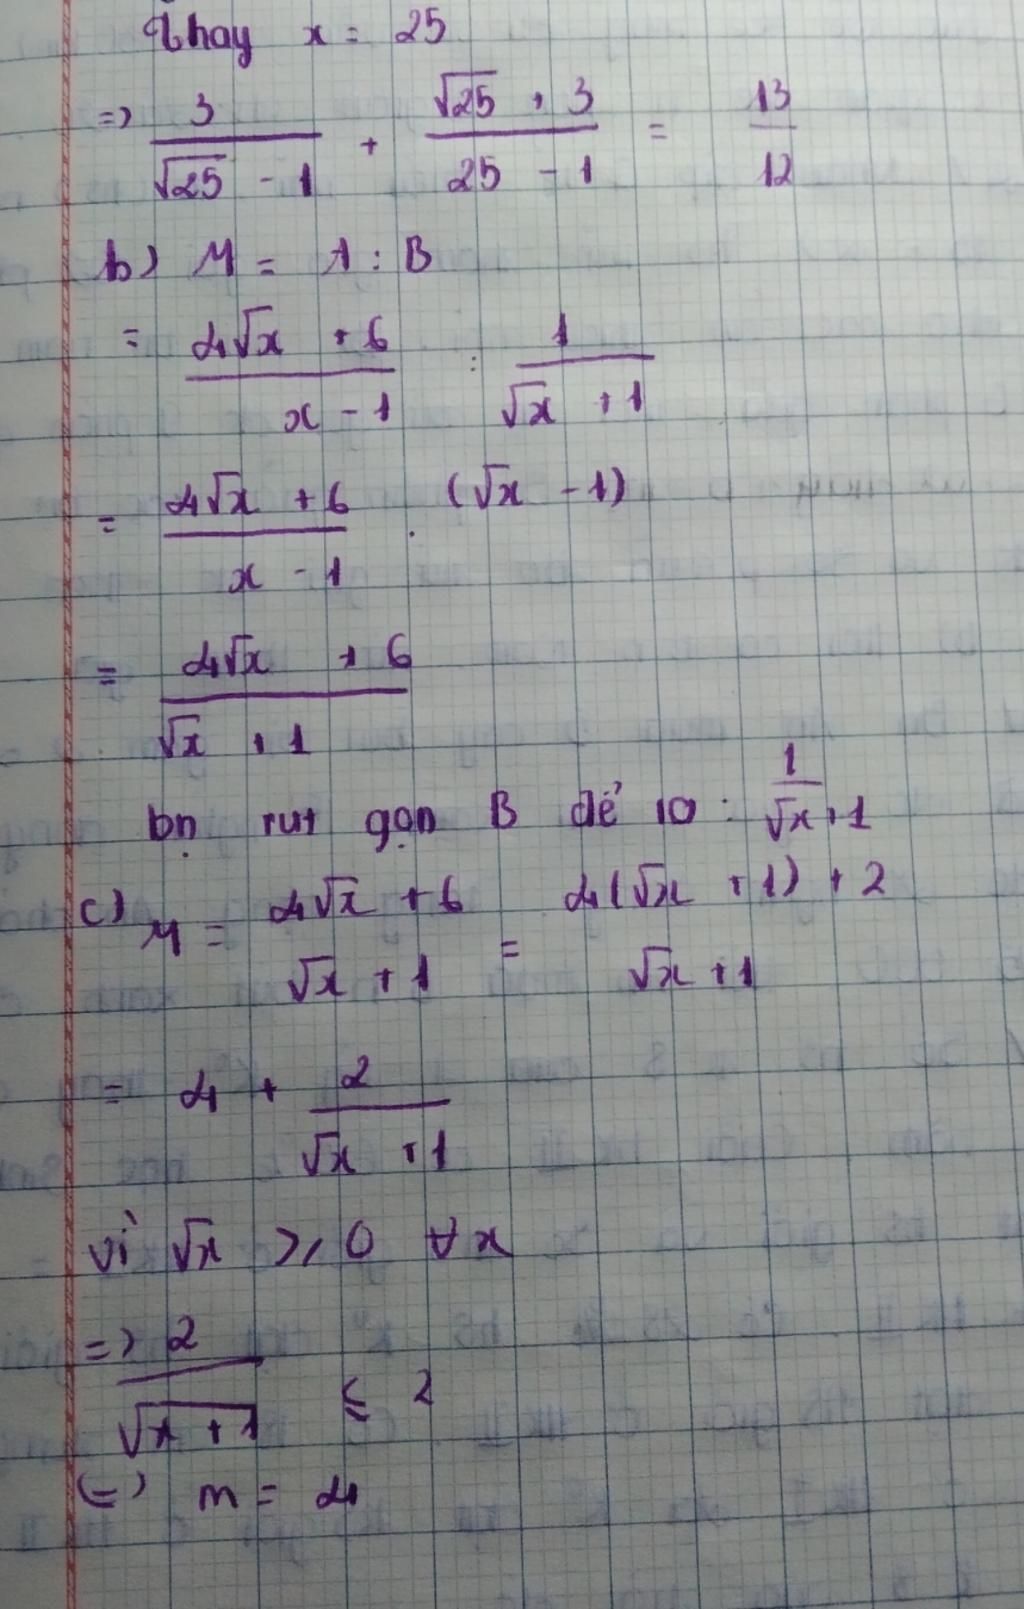 Thay x = 25
=> 3/(√25 - 1) + (√25 + 3)/(25 - 1) = 13/12
b) M = A : B
= (4√x + 6)/(x - 1) : 1/(√x + 1)
= (4√x + 6)/(x - 1) . (√x - 1)
= (4√x + 6)/(√x + 1)
bn rut gọn B để ra : 1/(√x + 1)
c) M = (4√x + 6)/(√x + 1) = (4(√x + 1) + 2)/(√x + 1)
= 4 + 2/(√x + 1)
vì √x ≥ 0 ∀x
=> 2/√(x + 1) ≤ 2
(=) m = 4